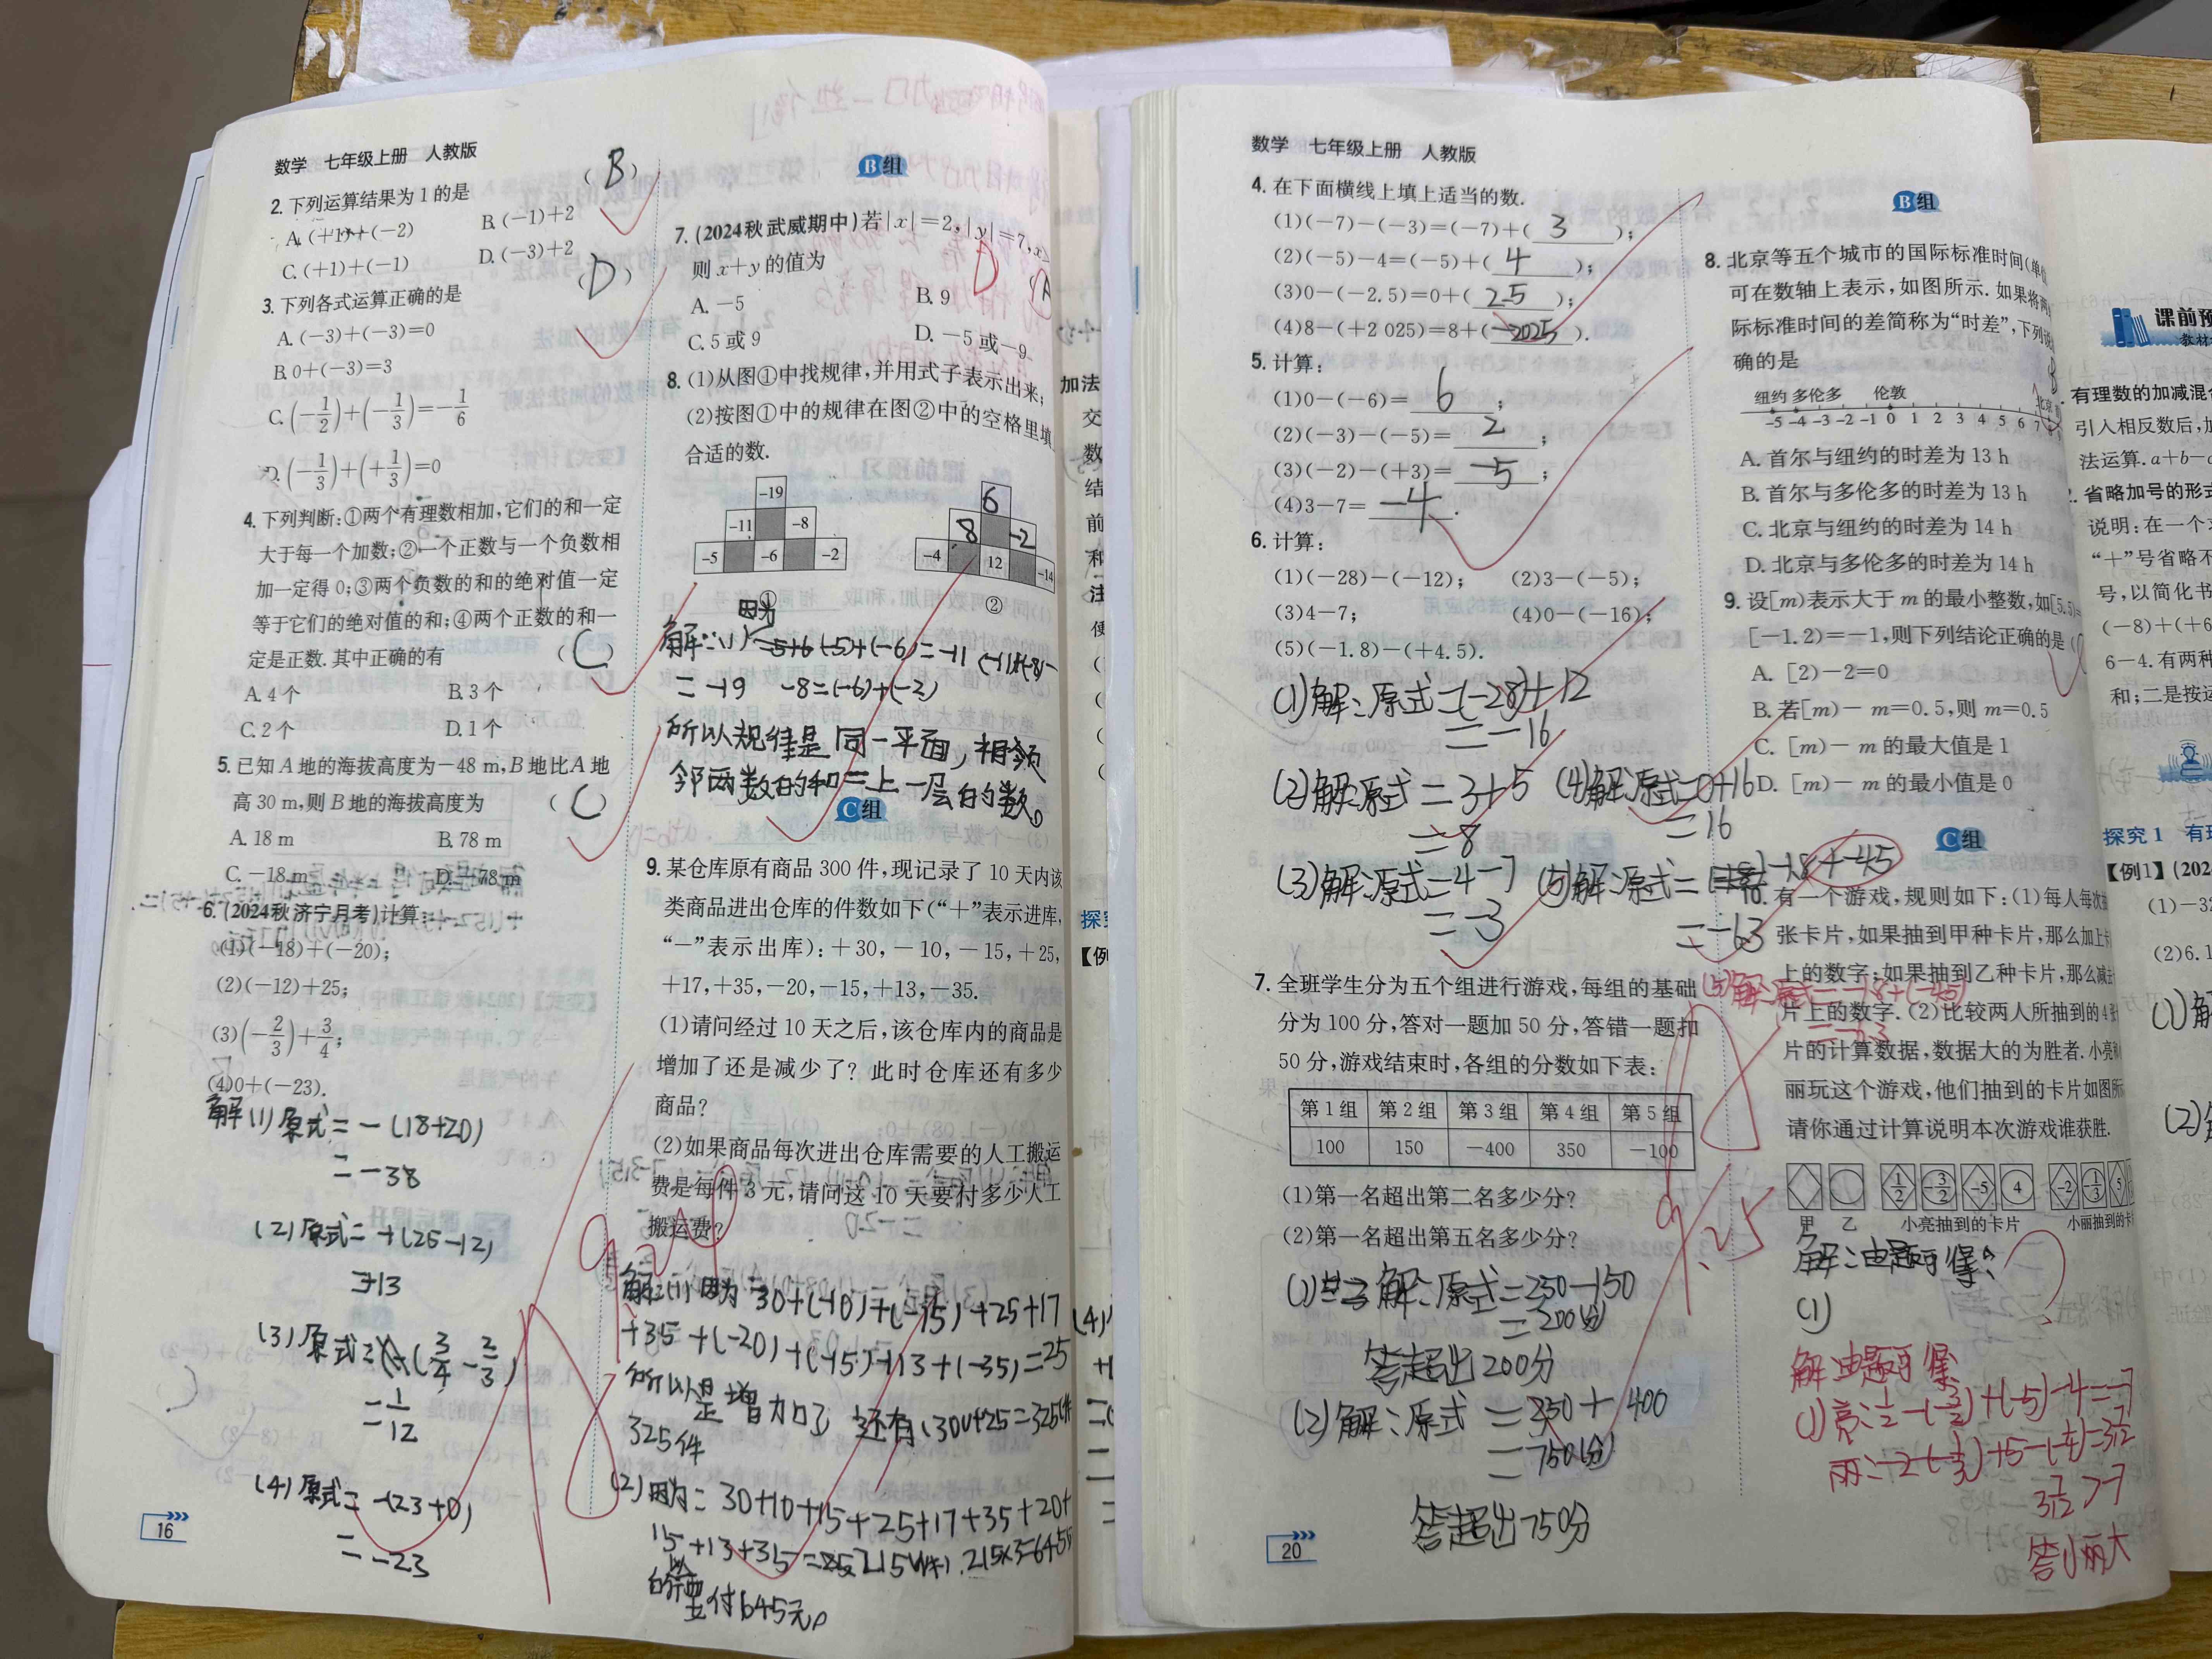 数学 七年级上册 人教版
2. 下列运算结果为1的是 (B)
A. (+1)+(-2) B. (-1)+2
C. (+1)+(-1) D. (-3)+2
3. 下列各式运算正确的是 (D)
A. (-3)+(-3)=0
B. 0+(-3)=3
C. (-1/2)+(-1/3)=-1/6
D. (-1/3)+(+1/3)=0
4. 下列判断:①两个有理数相加,它们的和一定
大于每一个加数;②一个正数与一个负数相
加一定得0;③两个负数的和的绝对值一定
等于它们的绝对值的和;④两个正数的和一
定是正数.其中正确的有 (C)
A. 4个 B. 3个
C. 2个 D. 1个
5. 已知A地的海拔高度为-48 m,B地比A地
高30 m,则B地的海拔高度为 (C)
A. 18 m B. 78 m
C. -18 m D. -78 m
6. (2024秋济宁月考)计算:
(1)(-18)+(-20);
(2)(-12)+25;
(3)(-2/3)+3/4;
(4)0+(-23).
解(1)原式=-(18+20)
=-38
(2)原式=+(25-12)
=13
(3)原式=+(3/4-2/3)
=1/12
(4)原式=-(23+0)
=-23
16
B组
7. (2024秋武威期中)若|x|=2,|y|=7,x
则x+y的值为 D (A
A. -5 B. 9
C. 5或9 D. -5或-9
8. (1)从图①中找规律,并用式子表示出来;
(2)按图①中的规律在图②中的空格里填
合适的数.
-19
-11 -8
-5 -6 -2
①
6
8 -2
-4 12 -14
②
因为
=-11
=-19 -8=(-6)+(-2)
所以规律是同一平面,相邻
邻两数的和=上一层的数。
C组
9. 某仓库原有商品300件,现记录了10天内该
类商品进出仓库的件数如下(“+”表示进库,
“-”表示出库):+30,-10,-15,+25,
+17,+35,-20,-15,+13,-35.
(1)请问经过10天之后,该仓库内的商品是
增加了还是减少了?此时仓库还有多少
商品?
(2)如果商品每次进出仓库需要的人工搬运
费是每件3元,请问这10天要付多少人工
搬运费?
解:(1)因为30+(-10)+(-15)+25+17
+35+(-20)+(-15)+13+(-35)=25
所以是增加了 还有(300+25=325件
325件
(2)因为=30+10+15+25+17+35+20+
15+13+35=215(件).215×3=645
要付645元。
9.29
加法
交
数
结
前
和
注
探究
【例
数学 七年级上册 人教版
4. 在下面横线上填上适当的数.
(1)(-7)-(-3)=(-7)+( 3 );
(2)(-5)-4=(-5)+( 4 );
(3)0-(-2.5)=0+( 2.5 );
(4)8-(+2 025)=8+( -2025 ).
5. 计算:
(1)0-(-6)= 6 ;
(2)(-3)-(-5)= 2 ;
(3)(-2)-(+3)= -5 ;
(4)3-7= -4 .
6. 计算:
(1)(-28)-(-12); (2)3-(-5);
(3)4-7; (4)0-(-16);
(5)(-1.8)-(+4.5).
(1)解:原式=(-28)+12
=-16
(2)解:原式=3+5
=8
(3)解:原式=4-7
=-3
(4)解:原式=0+16
=16
(5)解:原式=-1.8+-4.5
=-6.3
(5)解:原式=-1.8+(-4.5)
=-6.3
7. 全班学生分为五个组进行游戏,每组的基础
分为100分,答对一题加50分,答错一题扣
50分,游戏结束时,各组的分数如下表:
第1组 第2组 第3组 第4组 第5组
100 150 -400 350 -100
(1)第一名超出第二名多少分?
(2)第一名超出第五名多少分?
(1) 解:原式=350-150
=200(分)
答超出200分
(2)解:原式=350+400
=750(分)
答超出750分
9.25
20
B组
8. 北京等五个城市的国际标准时间(单位
可在数轴上表示,如图所示.如果将两
际标准时间的差简称为“时差”,下列说
确的是
纽约 多伦多 伦敦 北京
-5 -4 -3 -2 -1 0 1 2 3 4 5 6 7 8
A. 首尔与纽约的时差为13 h
B. 首尔与多伦多的时差为13 h
C. 北京与纽约的时差为14 h
D. 北京与多伦多的时差为14 h
9. 设[m)表示大于m的最小整数,如[5.5)=
[-1.2)=-1,则下列结论正确的是
A. [2)-2=0
B. 若[m)-m=0.5,则m=0.5
C. [m)-m的最大值是1
D. [m)-m的最小值是0
C组
10. 有一个游戏,规则如下:(1)每人每次抽
张卡片,如果抽到甲种卡片,那么加上卡
上的数字;如果抽到乙种卡片,那么减去
片上的数字.(2)比较两人所抽到的4张
片的计算数据,数据大的为胜者.小亮和
丽玩这个游戏,他们抽到的卡片如图所
请你通过计算说明本次游戏谁获胜.
1/2 -3/2 -5 4 -2 -1/3 5
甲 乙 小亮抽到的卡片 小丽抽到的卡
解:由题可得:
(1)
解:由题可得
(1)亮:1/2-(-3/2)+(-5)-4=-7
3 7/12>-7
答小丽大
课前预
教材
有理数的加减混合
引入相反数后,加
法运算.a+b-c
2. 省略加号的形式
说明:在一个
“+”号省略不
号,以简化书
(-8)+(+6
6-4.有两种
和;二是按运
探究1 有理
【例1】(202
(1)-32
(2)6.1
(1)解
(2)